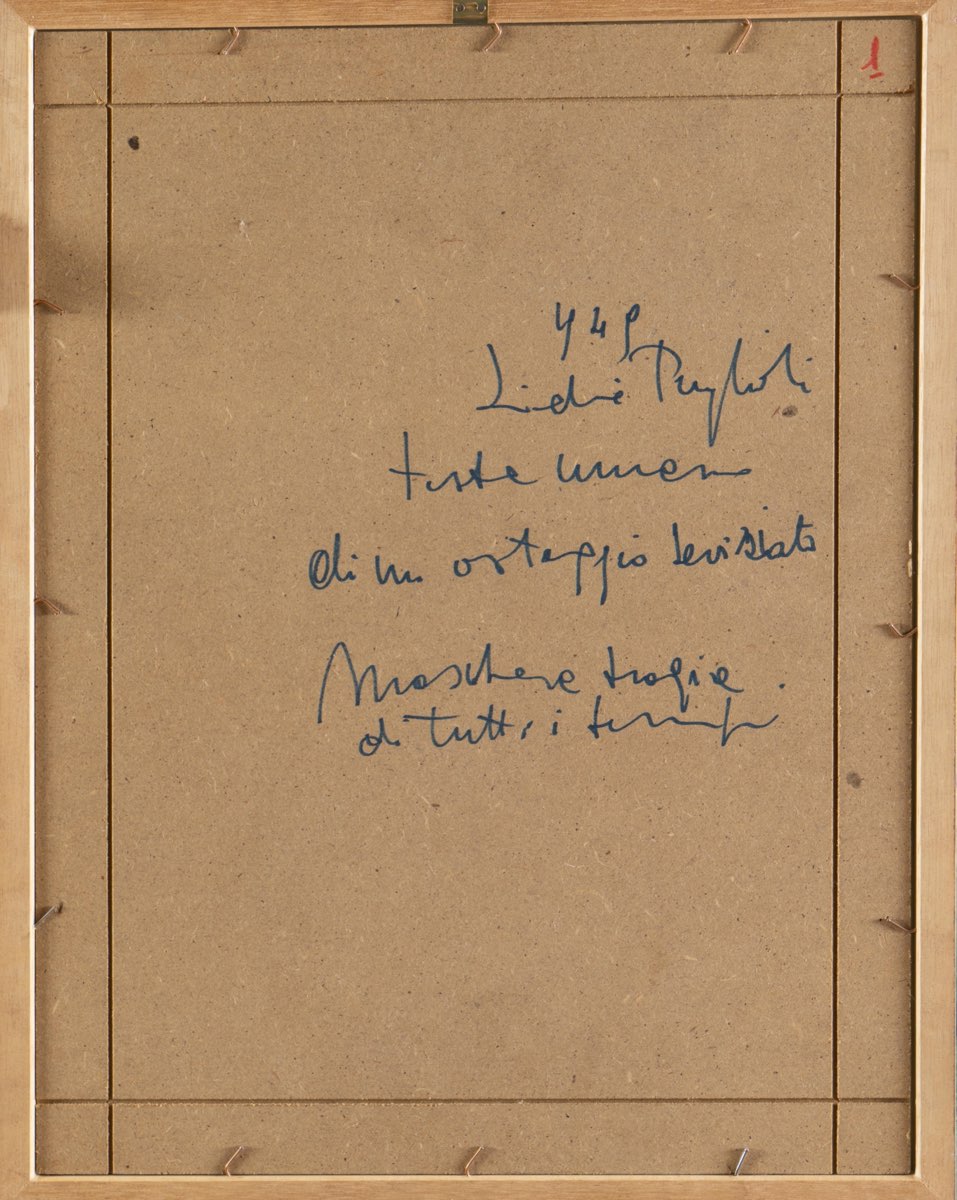 1
Lidia Puglioli
testa umana
di un ostaggio seviziato
Maschera tragica.
di tutti i tempi